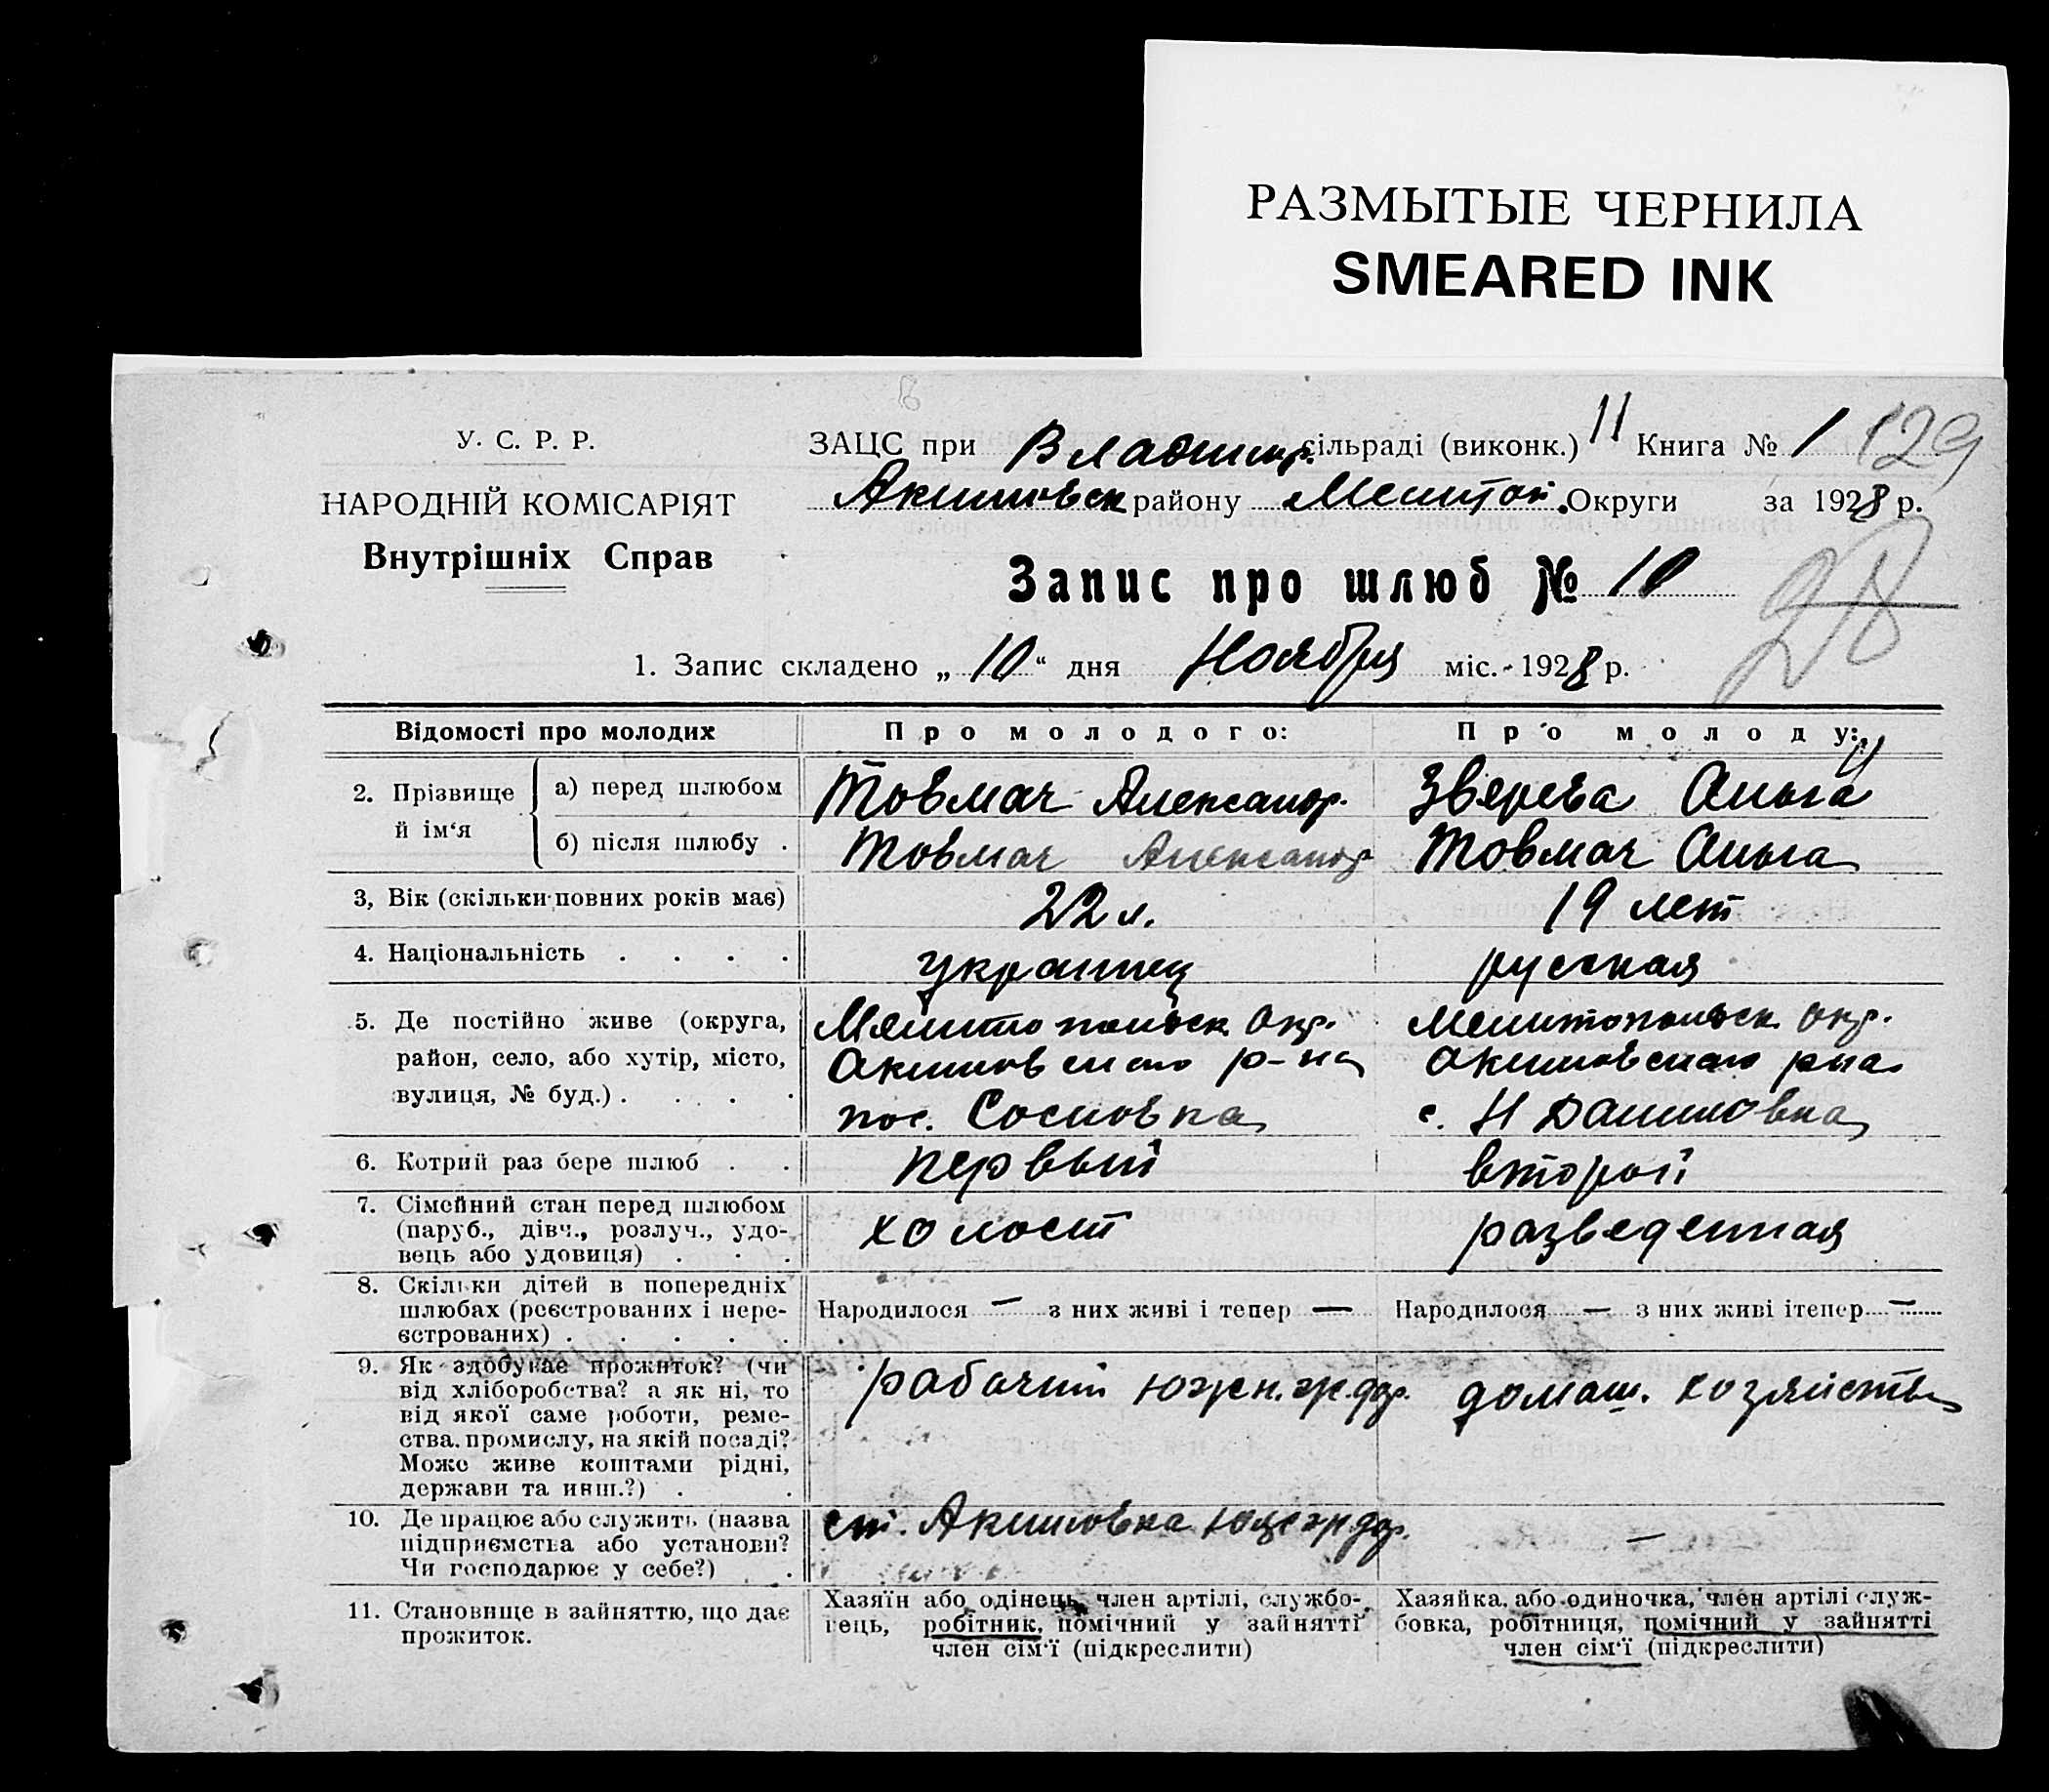 РАЗМЫТЫЕ ЧЕРНИЛА
SMEARED INK
У. С. Р. Р.
НАРОДНІЙ КОМІСАРІЯТ
Внутрішніх Справ
ЗАЦС при Владимир. сільраді (виконк.) 11 Книга № 1 129
Акимовск району Мелитоп. Округи за 1928 р.
Запис про шлюб № 10
28
1. Запис складено „ 10 “ дня Ноября міс. 1928 р.
Відомості про молодих
Про молодого:
Про молоду:
2. Прізвище й ім‘я
а) перед шлюбом
Товмач Александр.
Зверева Ольга
б) після шлюбу .
Товмач Александр
Товмач Ольга
3, Вік (скільки повних років має)
22 л.
19 лет
4. Національність . . . .
украинец
русская
5. Де постійно живе (округа,
район, село, або хутір, місто,
вулиця, № буд.) . . . .
Мелитопольск Окр.
Акимовского р-на
пос. Сосновка
Мелитопольск. Окр.
Акимовского рна
с. Н Даниловка
6. Котрий раз бере шлюб . .
первый
второй
7. Сімейний стан перед шлюбом
(паруб., дівч., розлуч., удо-
вець або удовиця) . . .
холост
разведенная
8. Скільки дітей в попередніх
шлюбах (реєстрованих і нере-
єстрованих) . . . . .
Народилося — з них живі і тепер —
Народилося — з них живі ітепер —
9. Як здобуває прожиток? (чи
від хліборобства? а як ні, то
від якої саме роботи, реме-
ства, промислу, на якій посаді?
Може живе коштами рідні,
держави та инш.?) . .
рабочий Южн. ж. дор.
домаш. хозяйство
10. Де працює або служить (назва
підприємства або установи?
Чи господарює у себе?) .
ст. Акимовка Юж ж дор.
—
11. Становище в зайняттю, що дає
прожиток.
Хазяїн або одінець, член артілі, службо-
вець, робітник, помічний у зайнятті
член сім‘ї (підкреслити)
Хазяйка, або одиночка, член артілі служ-
бовка, робітниця, помічний у зайнятті
член сім‘ї (підкреслити)